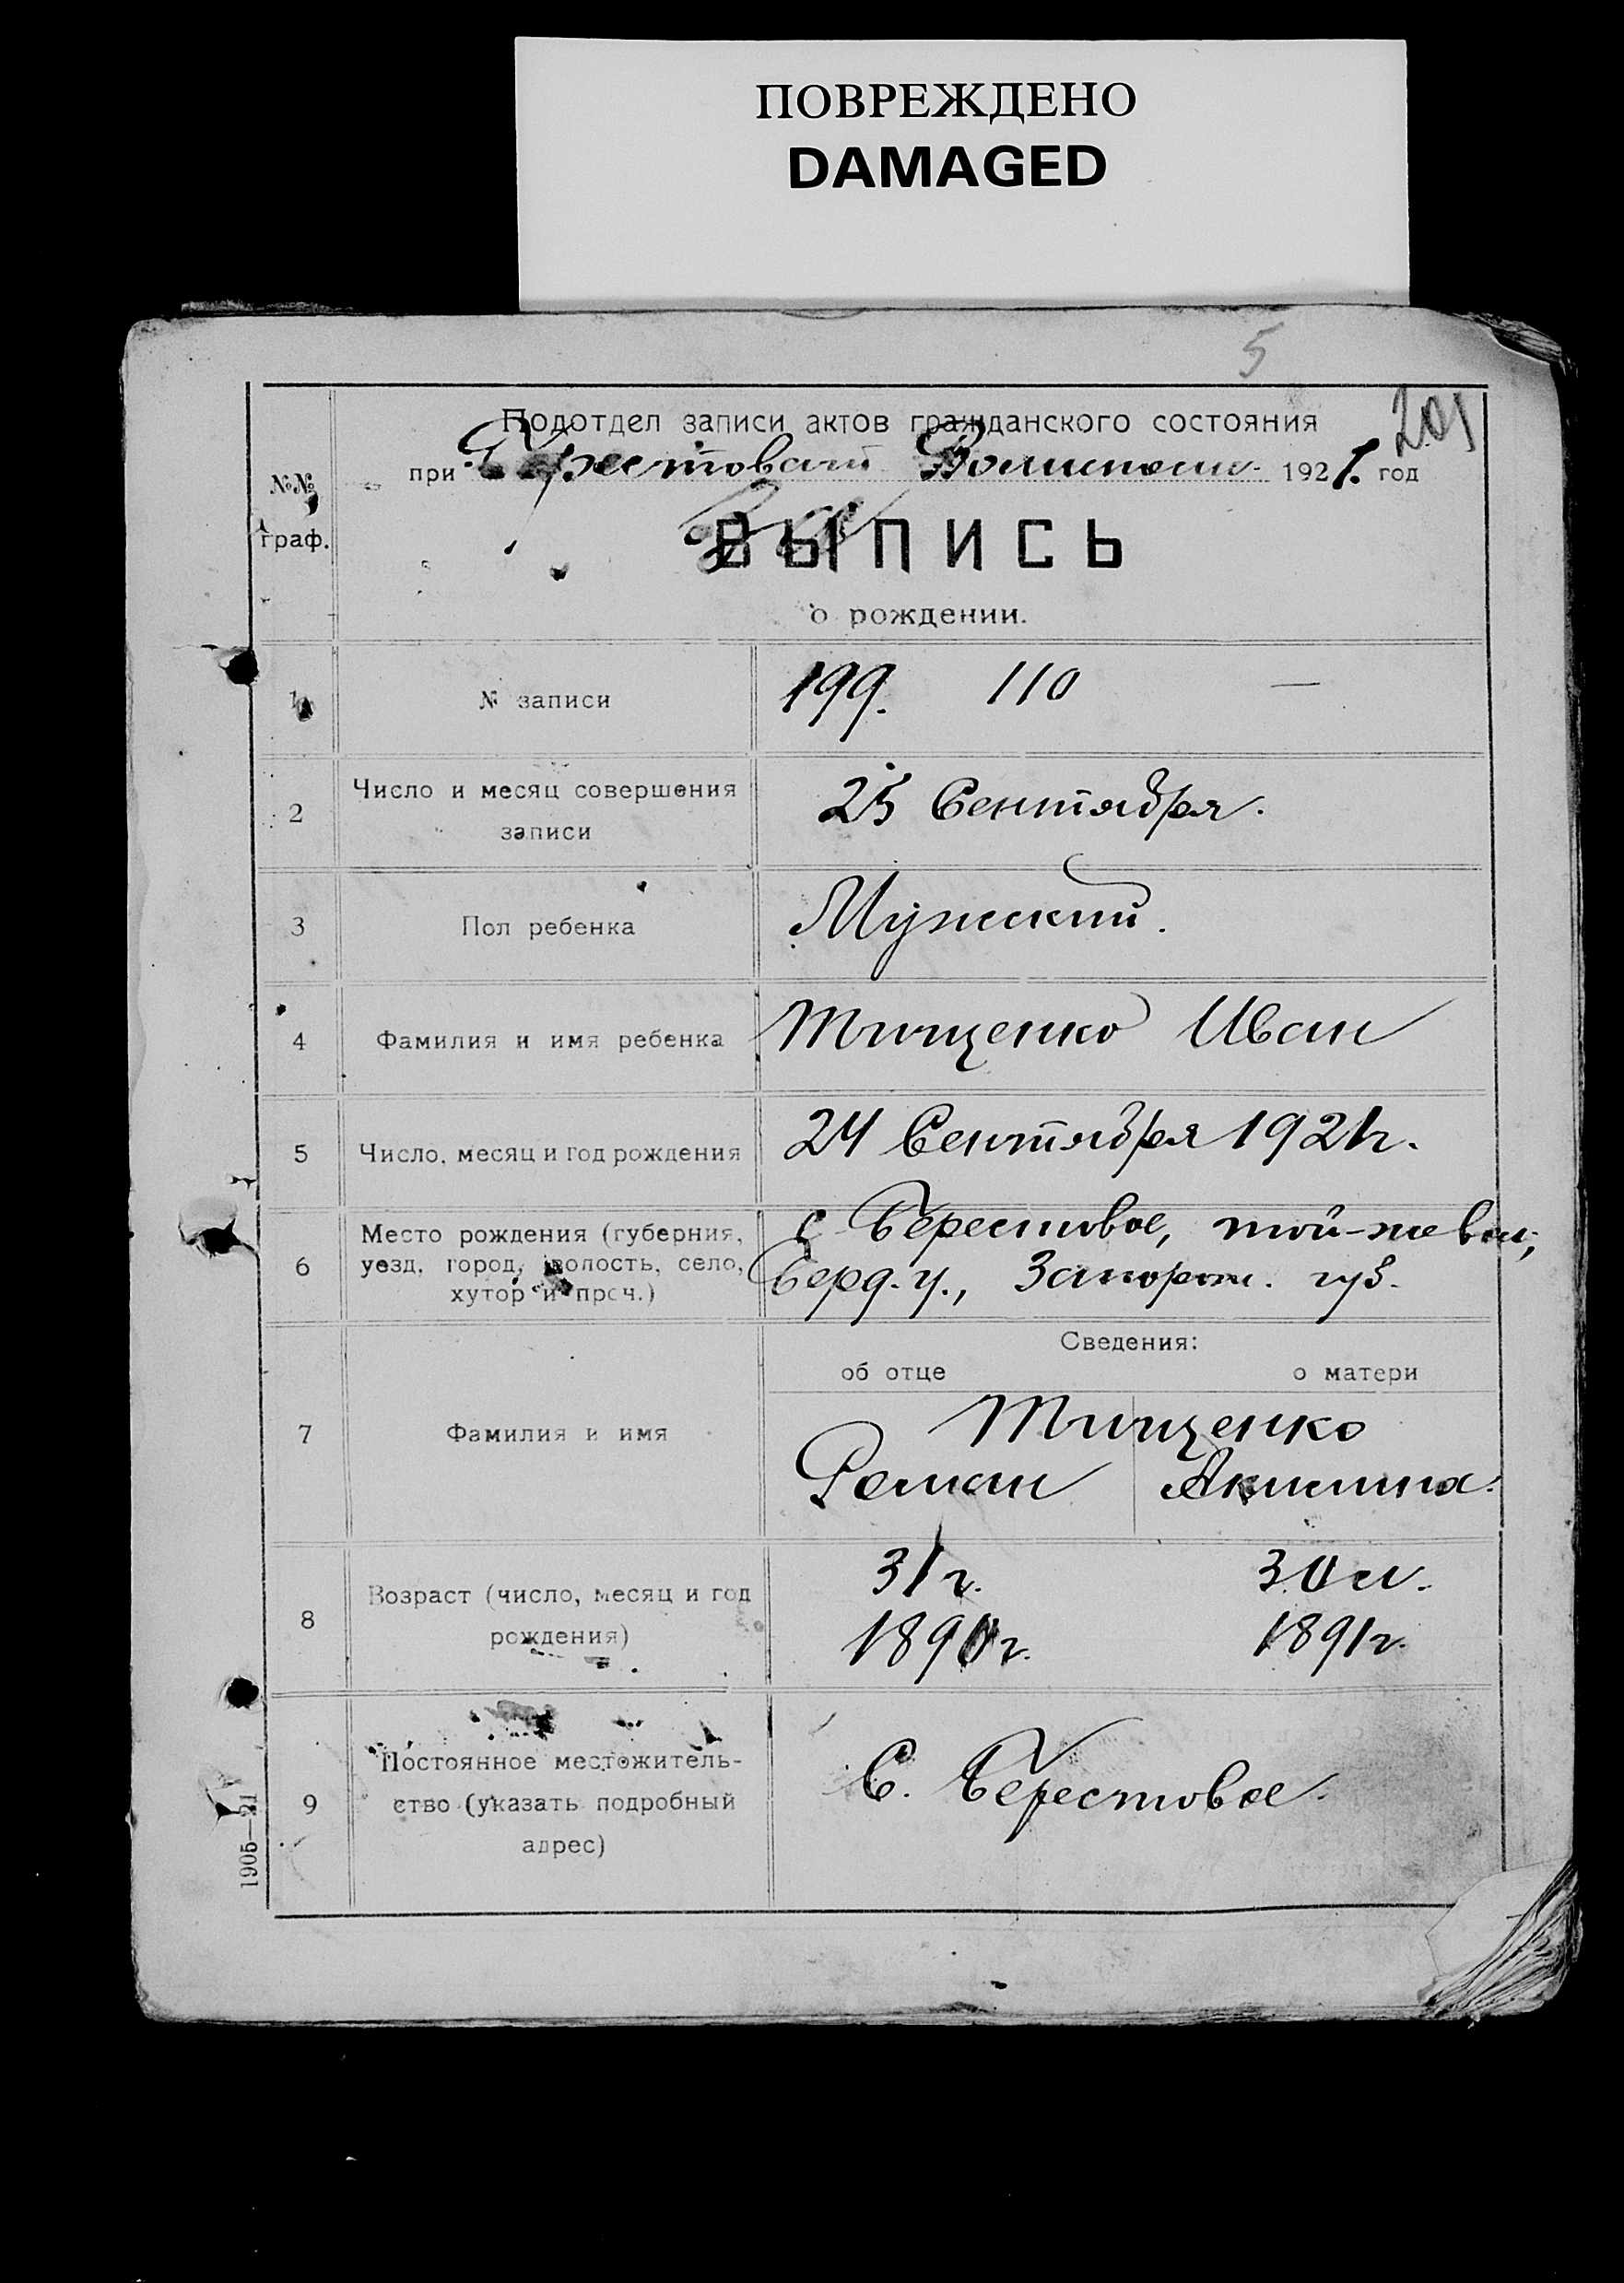 ПОВРЕЖДЕНО
DAMAGED
5
201
Подотдел записи актов гражданского состояния
при Берестоваги Волиспоми 1921. год
№№
граф.
ВЫПИСЬ
о рождении.
1 № записи 199. 110 —
2 Число и месяц совершения
записи 25 Сентября.
3 Пол ребенка Мужский.
4 Фамилия и имя ребенка Тищенко Иван
5 Число, месяц и год рождения 24 Сентября 1921 г.
6 Место рождения (губерния,
уезд, город, волость, село,
хутор и проч.)
с Берестовое, той-же вол;
Берд. у., Запорож. губ.
Сведения:
об отце о матери
7 Фамилия и имя
Тищенко
Роман Акилина.
8 Возраст (число, месяц и год
рождения)
31 г. 30 л.
1890 г. 1891 г.
9 Постоянное местожитель-
ство (указать подробный
адрес)
С. Берестовое.
1905—21